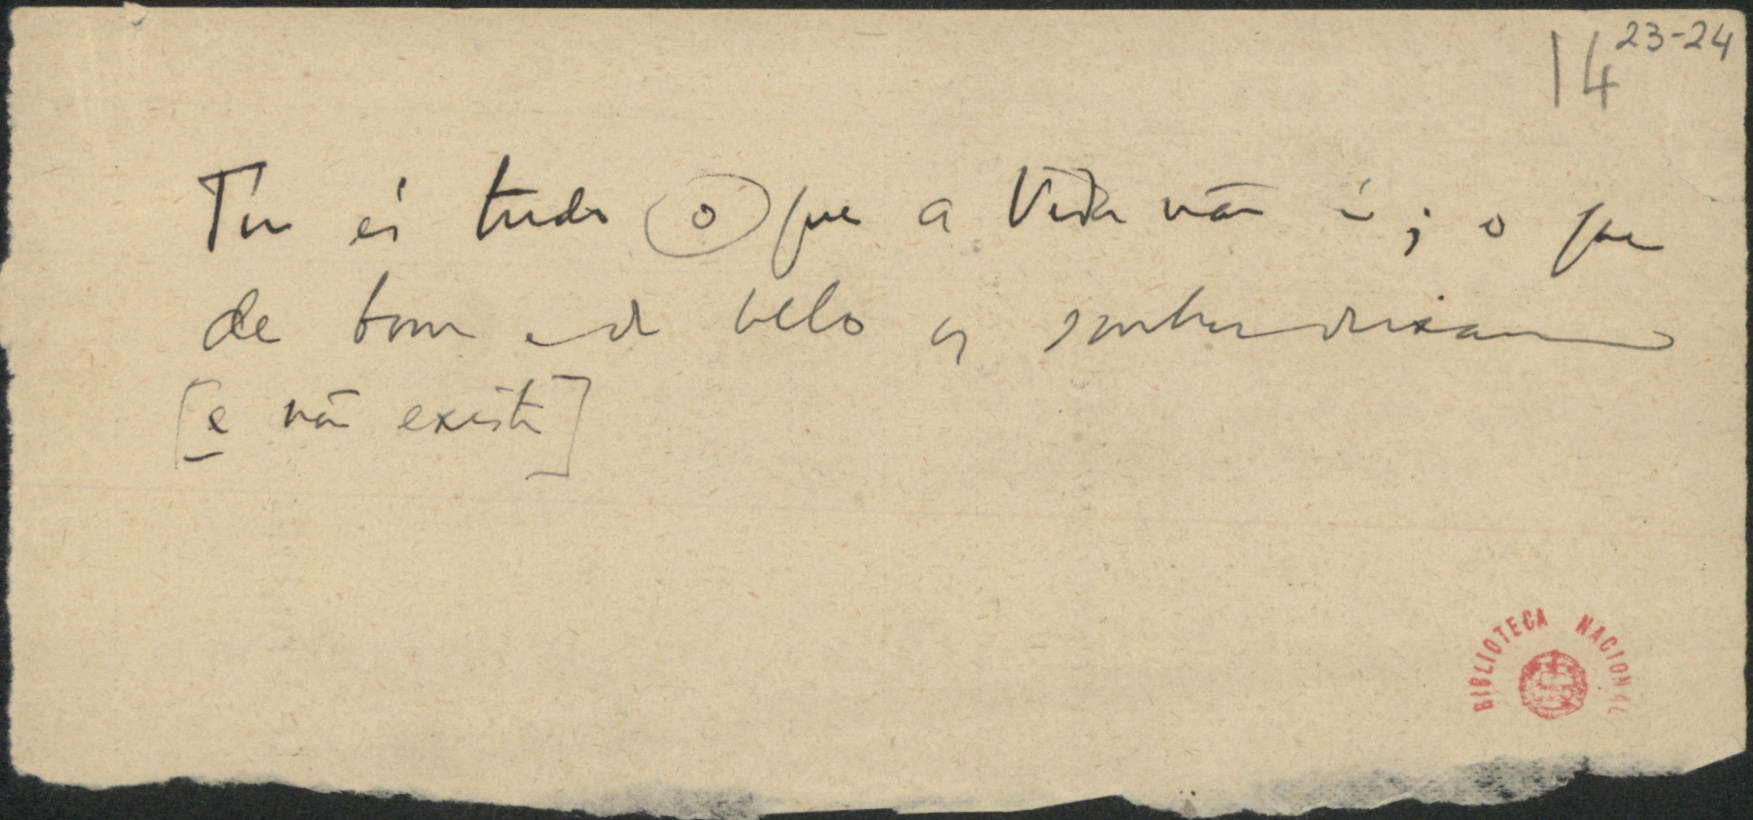 14 23-24
Tu és tudo o que a Vida não é; o que
de bom e de belo os sonhos deixam
[e não existe]
BIBLIOTECA NACIONAL